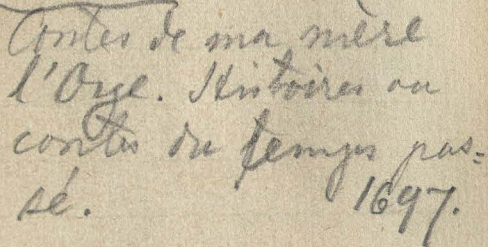 Contes de ma mère
l'Oye. Histoires ou
contes du temps pas=
sé. 1697.